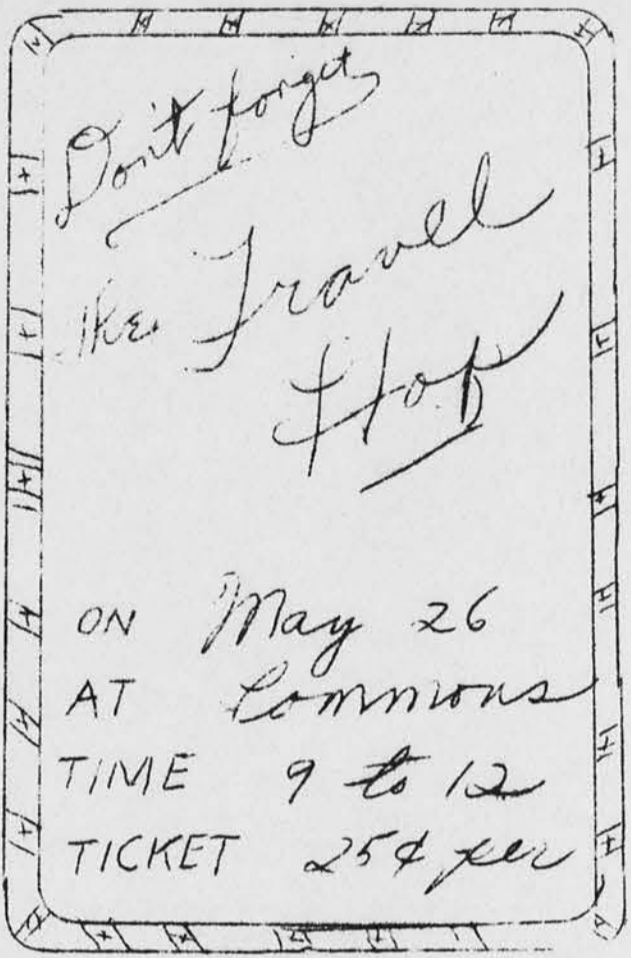 Don't forget
the Travel
Hop
ON May 26
AT Commons
TIME 9 to 12
TICKET 25¢ per